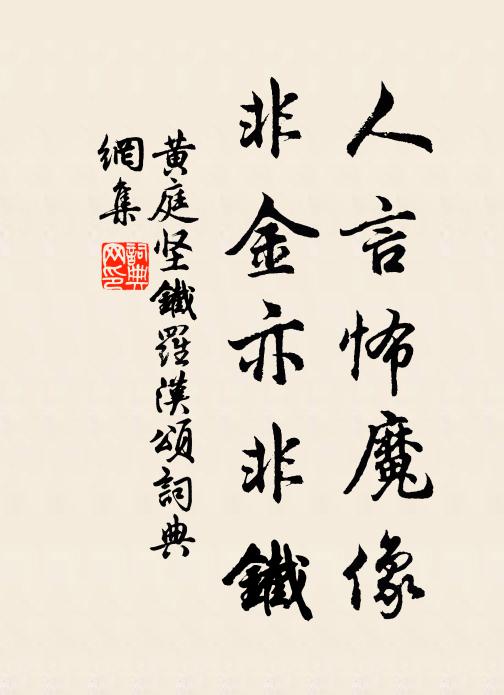 人言怖魔像
非金亦非鐵
黄庭坚鐵羅漢頌詞典
網集
詞典
网印